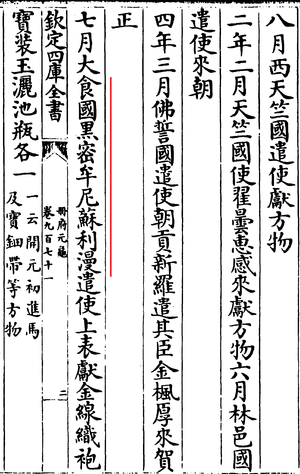 八月西天竺國遣使獻方物
二年二月天竺國使翟曇惠感來獻方物六月林邑國
遣使來朝
四年三月佛誓國遣使朝貢新羅遣其臣金楓厚來賀
正
七月大食國黑密牟尼蘇利漫遣使上表獻金線織袍
欽定四庫全書
冊府元龜
卷九百七十一
三
寶裝玉灑池瓶各一
一云開元初進馬
及寶鈿帶等方物